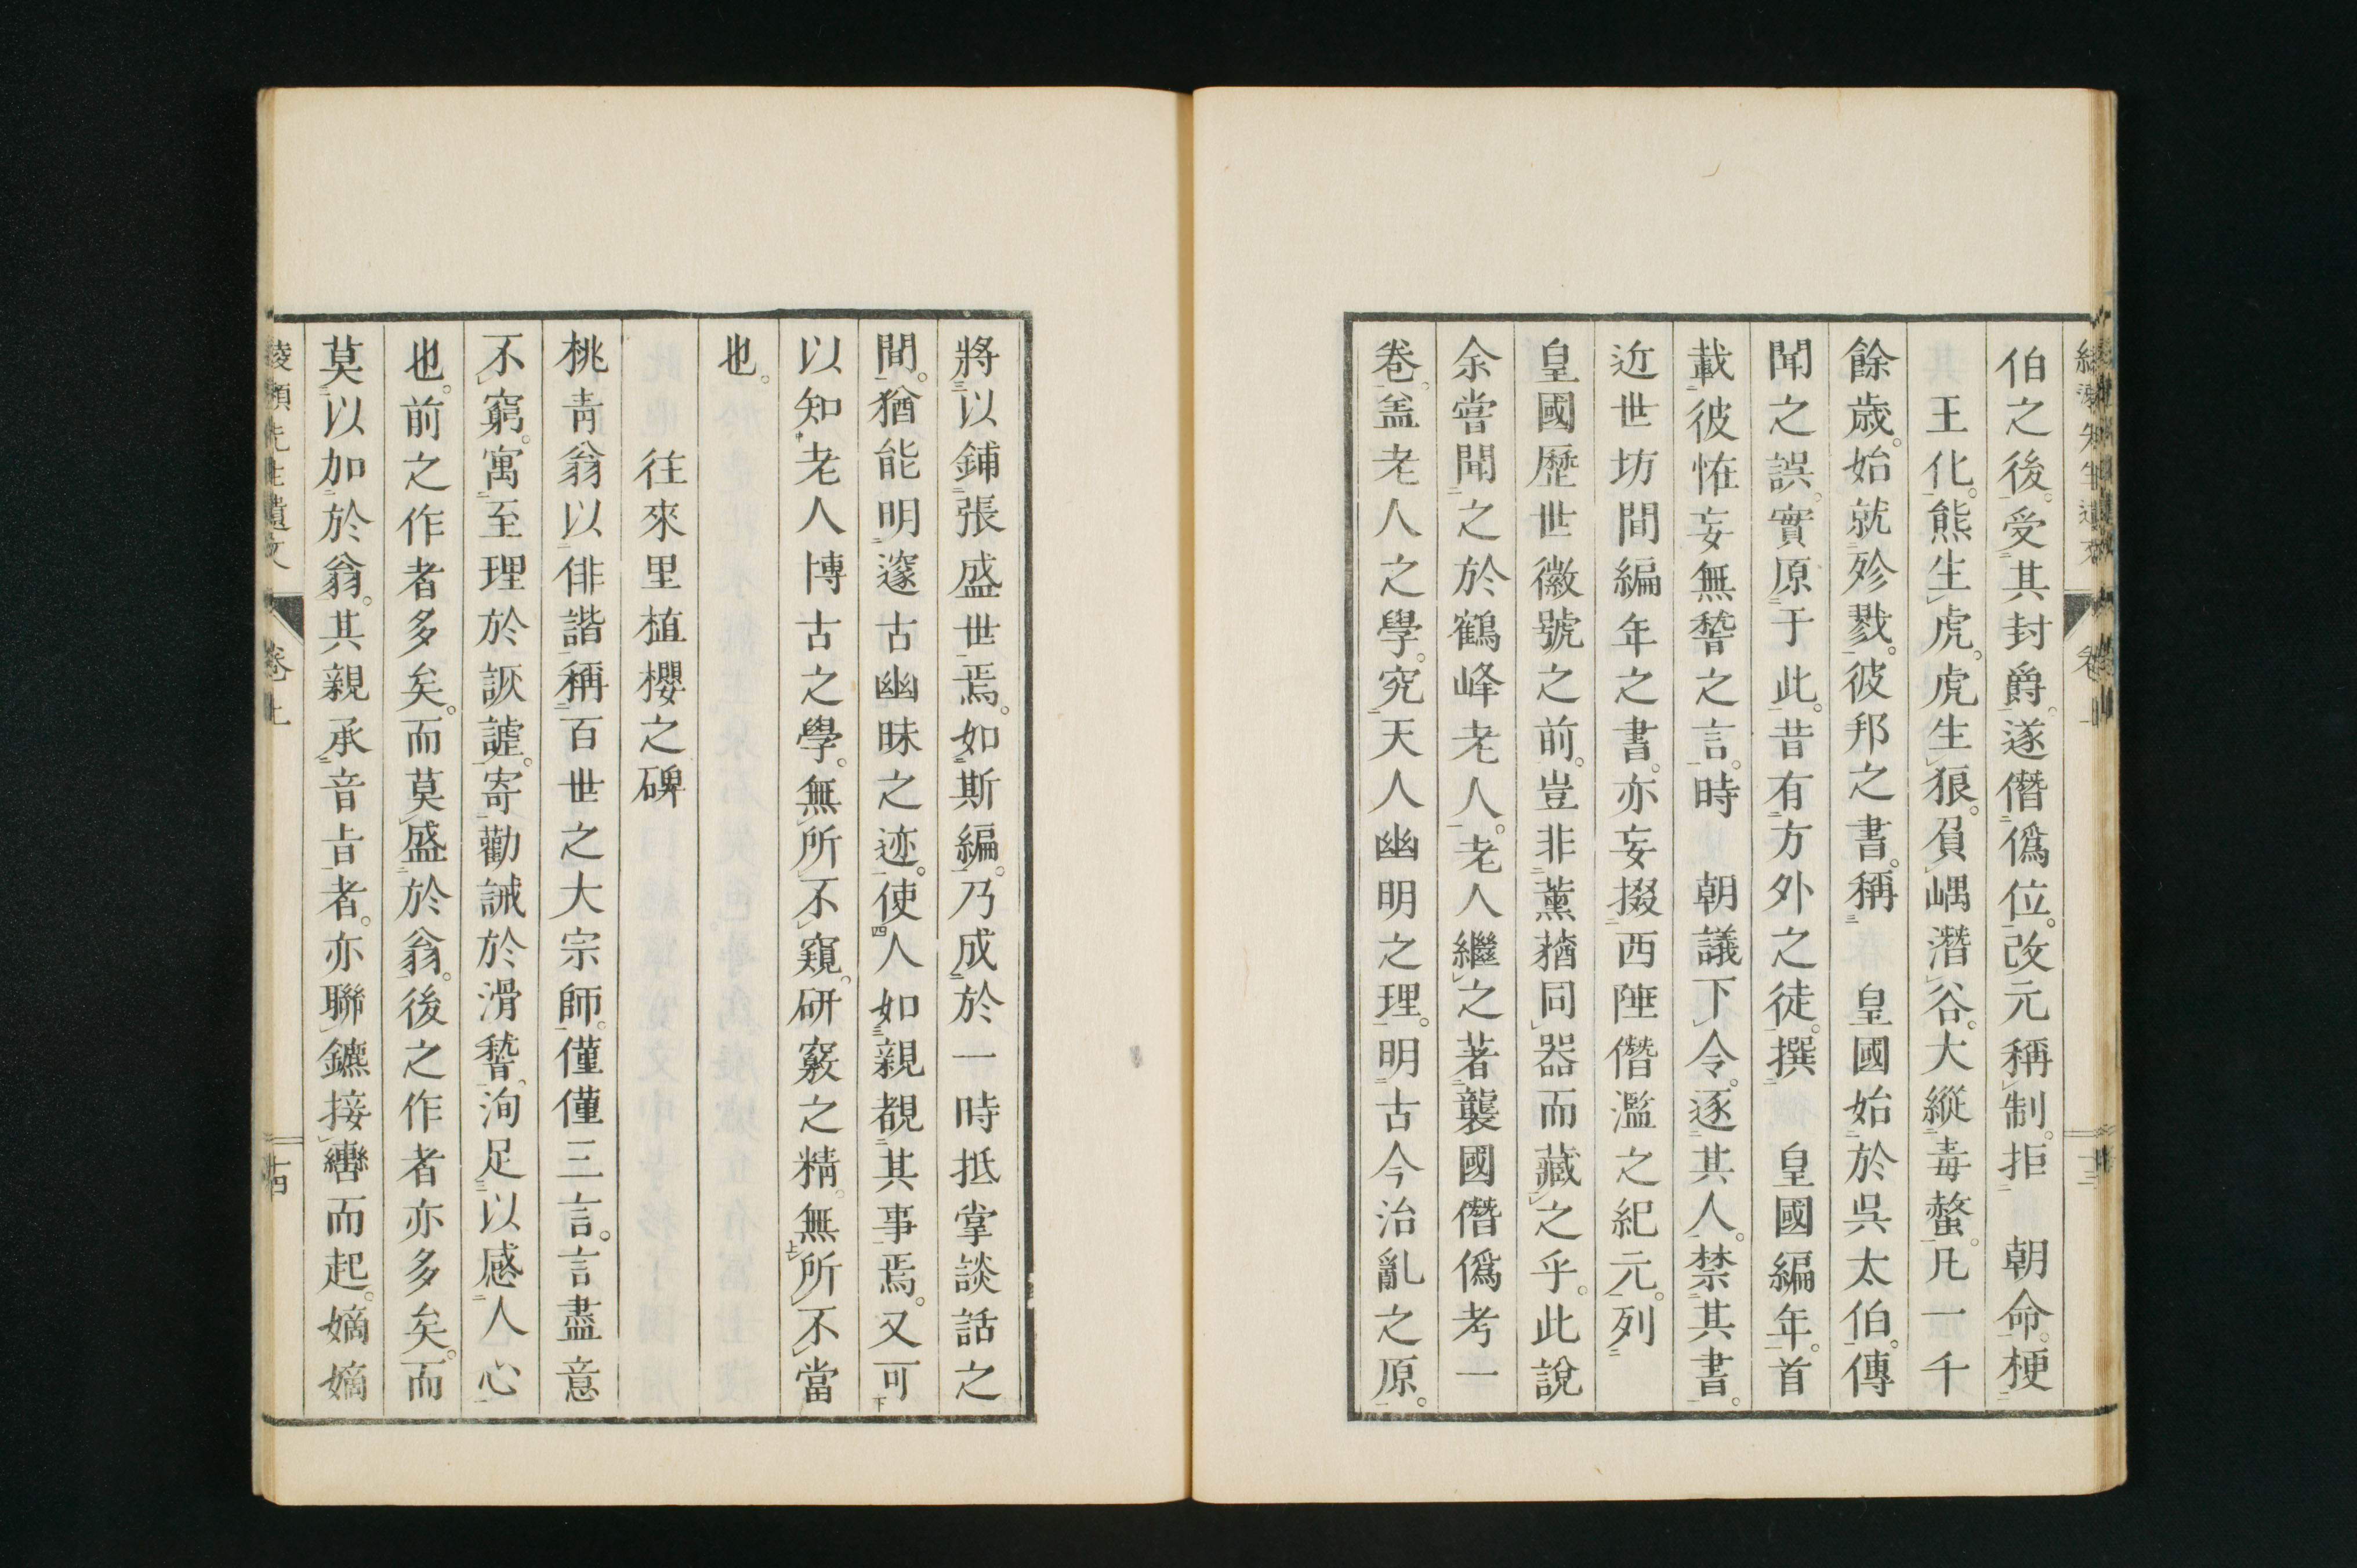 伯之後。受其封爵。遂僭僞位。改元稱制。拒　朝命。梗
王化。熊生虎。虎生狼。負嵎潛谷。大縱毒螫。凡一千
餘歳。始就殄戮。彼邦之書。稱　皇國始於吳太伯。傳
聞之誤。實原于此。昔有方外之徒。撰　皇國編年。首
載彼恠妄無稽之言。時　朝議下令。逐其人。禁其書。
近世坊間編年之書。亦妄掇西陲僭濫之紀元。列
皇國歷世徽號之前。豈非薰蕕同器而藏之乎。此說
余嘗聞之於鶴峰老人。老人繼之著襲國僭僞考一
卷。盖老人之學。究天人幽明之理。明古今治亂之原。
將以鋪張盛世焉。如斯編。乃成於一時抵掌談話之
間。猶能明邃古幽昧之迹。使人如親覩其事焉。又可
以知老人博古之學。無所不窺。研竅之精。無所不當
也。
往來里植櫻之碑
桃青翁以俳諧稱百世之大宗師。僅僅三言。言盡意
不窮。寓至理於詼謔。寄勸誡於滑稽。洵足以感人心
也。前之作者多矣。而莫盛於翁。後之作者亦多矣。而
莫以加於翁。其親承音旨者。亦聯鑣接轡而起。嫡嫡
綾瀬先生遺文　卷上　十四